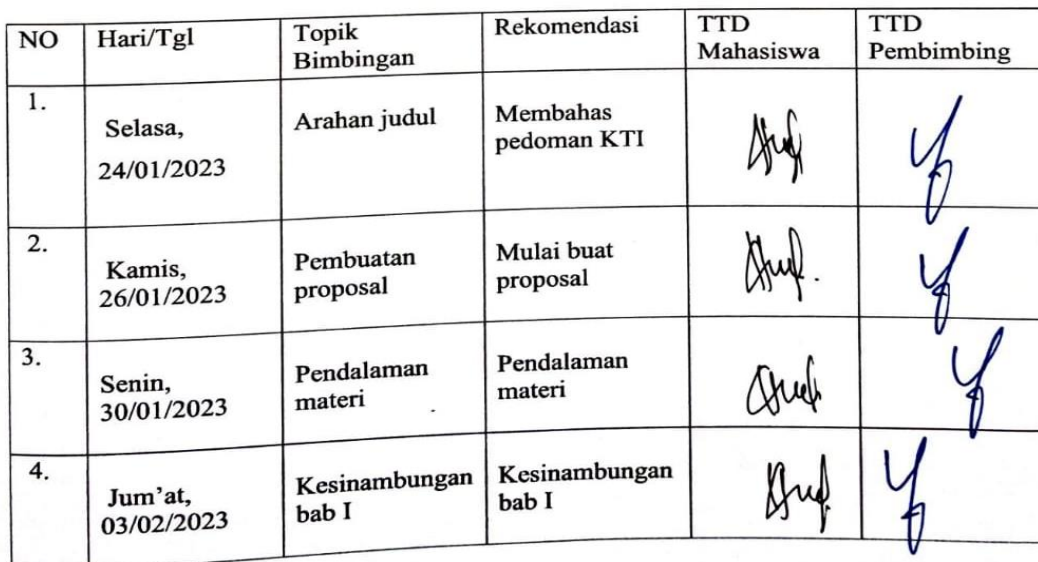 NO Hari/Tgl Topik Bimbingan Rekomendasi TTD Mahasiswa TTD Pembimbing
1. Selasa, 24/01/2023 Arahan judul Membahas pedoman KTI
2. Kamis, 26/01/2023 Pembuatan proposal Mulai buat proposal
3. Senin, 30/01/2023 Pendalaman materi Pendalaman materi
4. Jum'at, 03/02/2023 Kesinambungan bab I Kesinambungan bab I